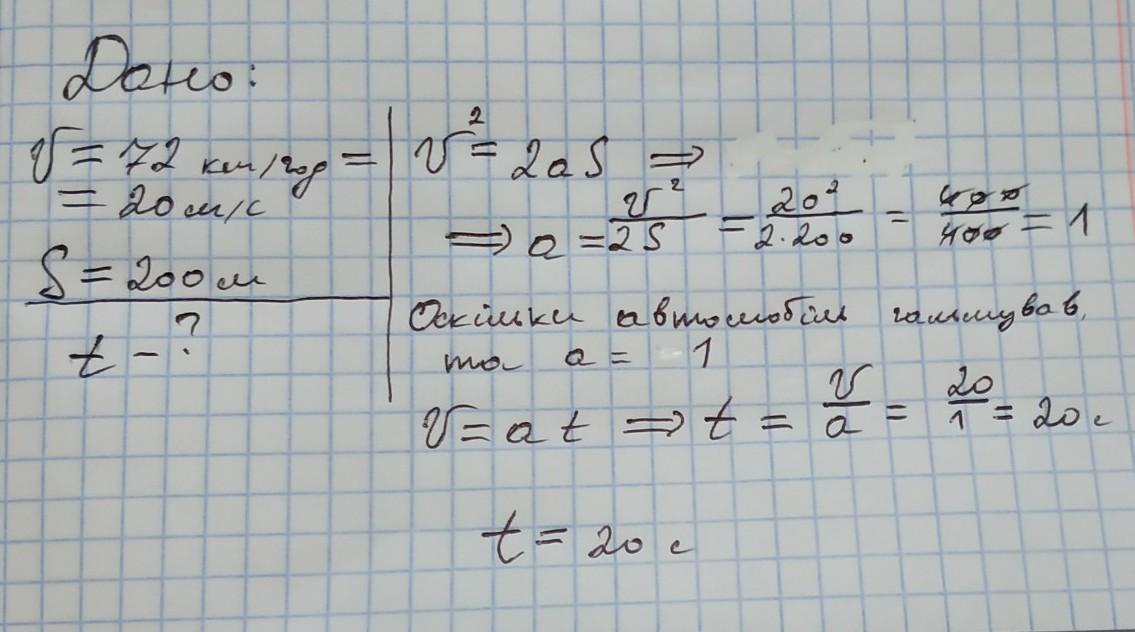 Дано:
V = 72 км/год =
= 20 м/с
S = 200 м
t - ?
V² = 2aS ⇒
⇒ a = V²/2S = 20²/2·200 = 400/400 = 1
Оскільки автомобіль гальмував,
та a = 1
V = a t ⇒ t = V/a = 20/1 = 20 с
t = 20 с